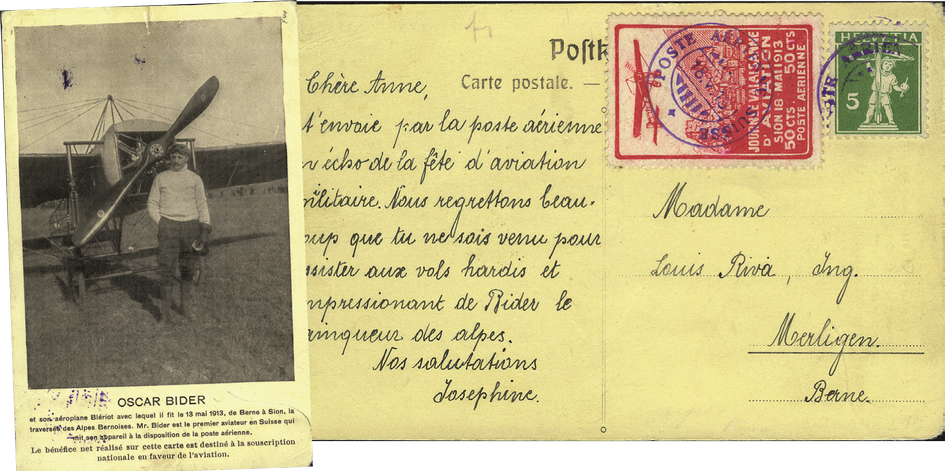 OSCAR BIDER
et son aéroplane Blériot avec lequel il fit le 13 mai 1913, de Berne à Sion, la
traversée des Alpes Bernoises. Mr. Bider est le premier aviateur en Suisse qui
mit son appareil à la disposition de la poste aérienne.
Le bénéfice net réalisé sur cette carte est destiné à la souscription
nationale en faveur de l'aviation.
Postk
Carte postale. —
Chère Anne,
t'envoie par la poste aérienne
n écho de la fête d'aviation
militaire. Nous regrettons beau-
oup que tu ne sois venu pour
ssister aux vols hardis et
mpressionant de Bider le
ainqueur des alpes.
Nos salutations
Josephine.
JOURNÉE VALAISANNE
D'AVIATION
SION 18 MAI 1913
50 CTS 50 CTS
POSTE AÉRIENNE
POSTE
SUISSE
HELVETIA
5
Madame
Louis Riva, Ing.
Merligen.
Berne.